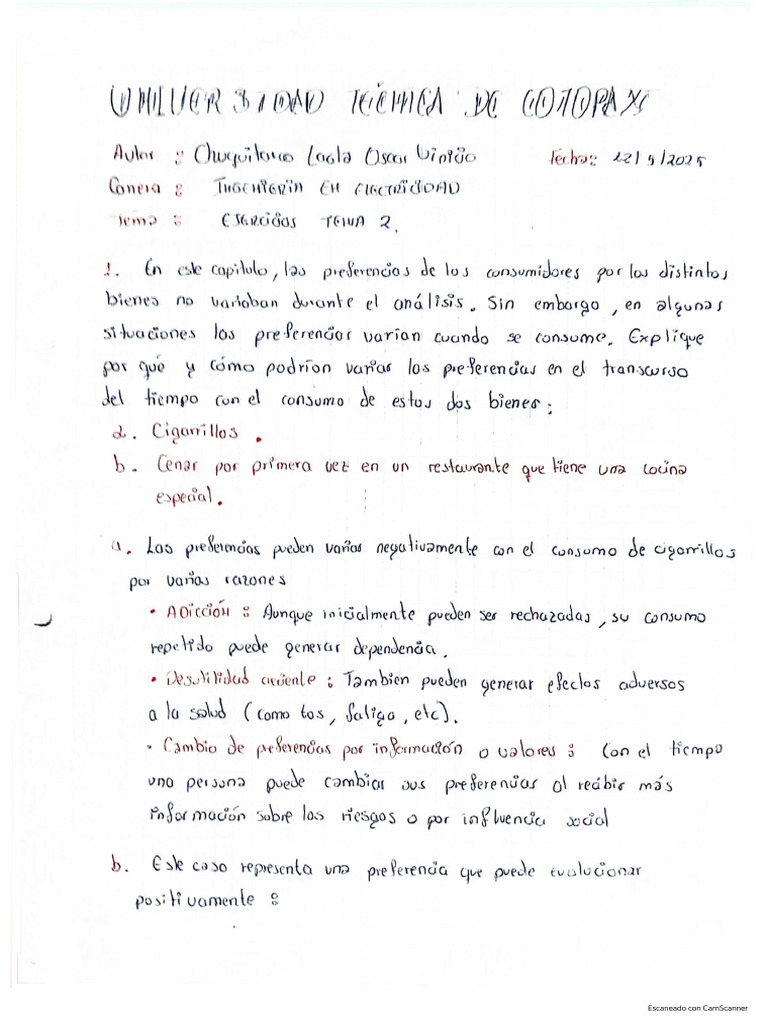 UNIVERSIDAD TÉCNICA DE COTOPAXI
Autor : Chuquitarco Oscar Fecha: 22/5/2025
Carrera : INGENIERÍA EN ELECTRICIDAD
Tema : EJERCICIOS TEMA 2.
1. En este capitulo, las preferencias de los consumidores por los distintos
bienes no variaban durante el análisis. Sin embargo, en algunas
situaciones las preferencias varían cuando se consume. Explique
por qué y cómo podrían variar las preferencias en el transcurso
del tiempo con el consumo de estos dos bienes:
a. Cigarrillos.
b. Cenar por primera vez en un restaurante que tiene una cocina
especial.
a. Las preferencias pueden variar negativamente con el consumo de cigarrillos
por varias razones
• ADICCIÓN : Aunque inicialmente pueden ser rechazadas, su consumo
repetido puede generar dependencia.
• Desutilidad creciente : Tambien pueden generar efectos adversos
a la salud (como tos, fatiga, etc).
• Cambio de preferencias por información o valores : Con el tiempo
una persona puede cambiar sus preferencias al recibir más
información sobre los riesgos o por influencia social
b. Este caso representa una preferencia que puede evolucionar
positivamente :
Escaneado con CamScanner